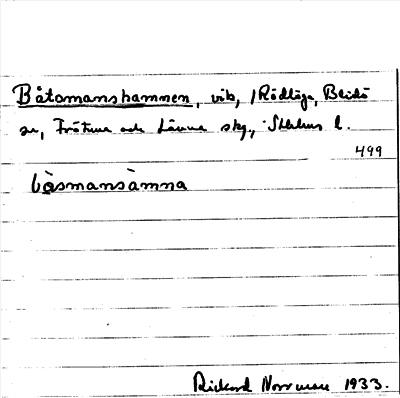 Båtsmanshamnen, vik, /Rödlöga, Blidö
sn, Frötuna och Länna skg., Sthlms l.
499
bàsmansàmna
Rickard Norrman 1933.